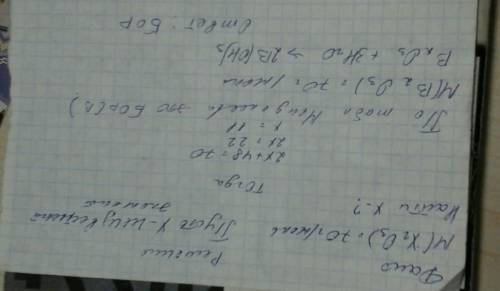 Дано
M(X₂O₃) = 70 г/моль
Найти X-?
Решение
Пусть X - неизвестный
элемент
Тогда
2x+48=70
2x = 22
x = 11
По табл Менделеева это Бор(B)
M(B₂O₃) = 70 г/моль
B₂O₃ + 3H₂O → 2B(OH)₃
Ответ: Бор